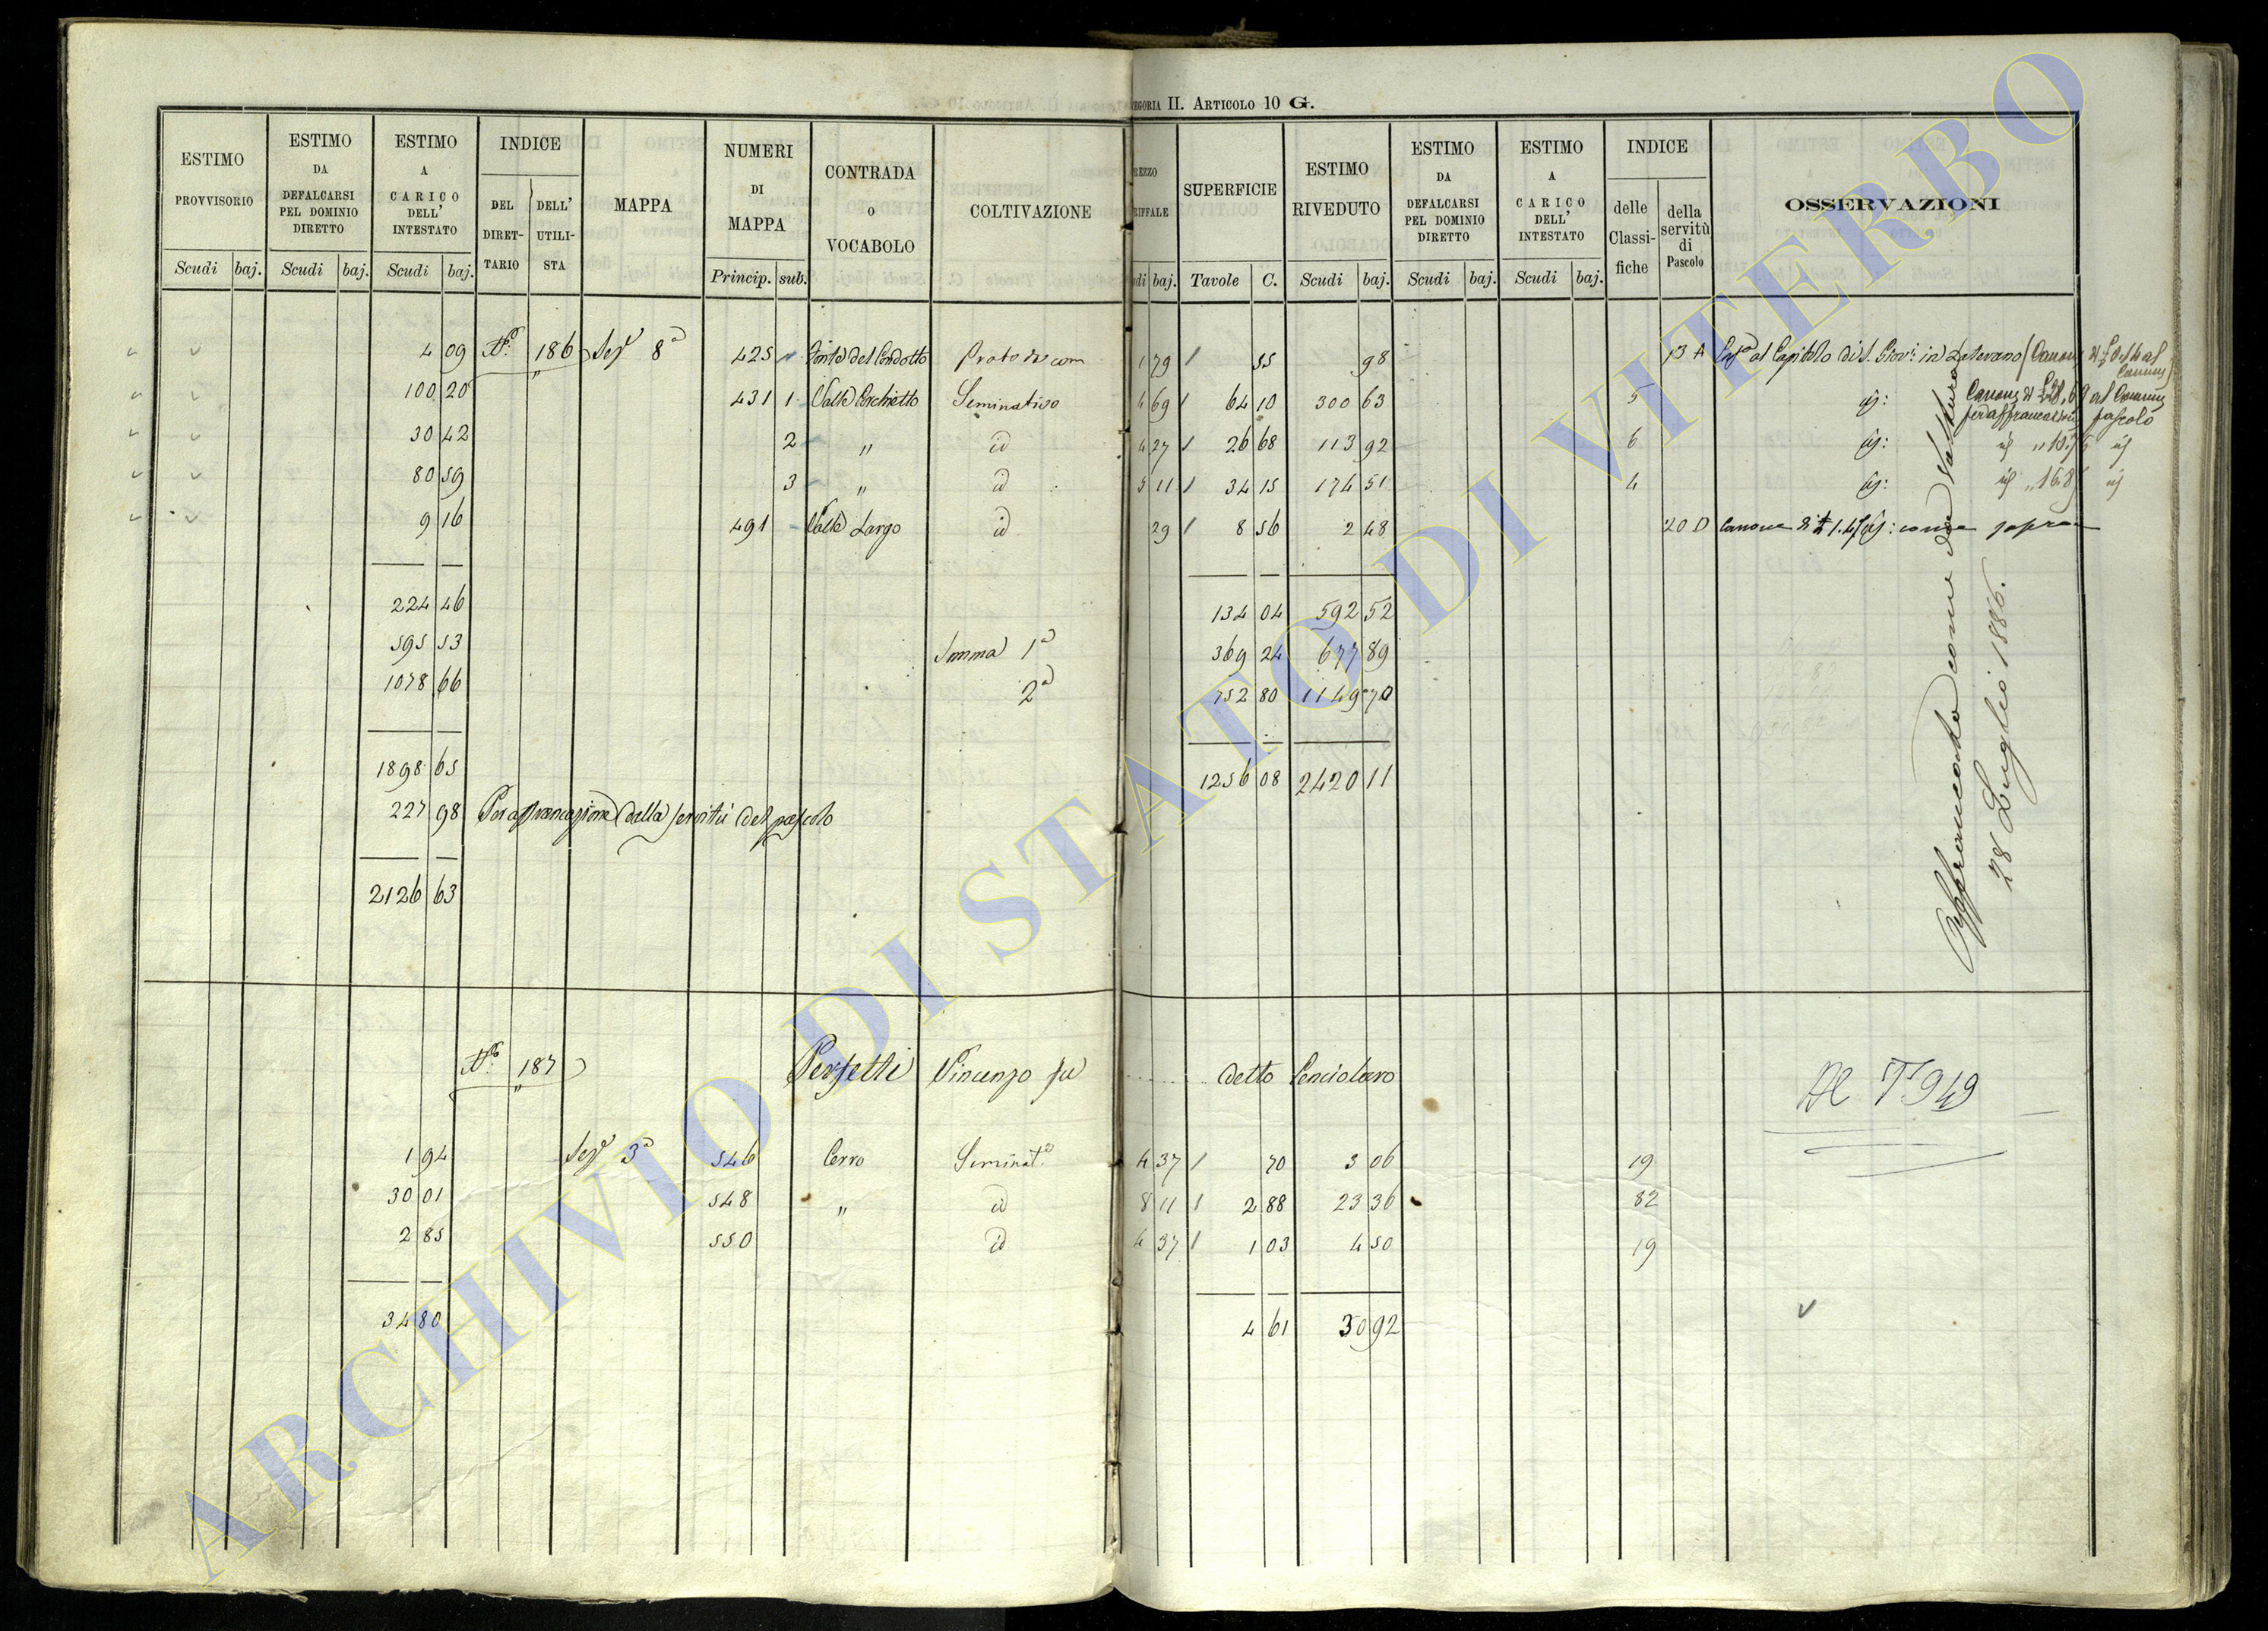 CATEGORIA II. ARTICOLO 10 G.
ESTIMO PROVVISORIO
ESTIMO DA DEFALCARSI PEL DOMINIO DIRETTO
ESTIMO A CARICO DELL' INTESTATO
INDICE
DEL DIRETTARIO
DELL' UTILISTA
MAPPA
NUMERI DI MAPPA
CONTRADA O VOCABOLO
COLTIVAZIONE
SUPERFICIE
ESTIMO RIVEDUTO
ESTIMO DA DEFALCARSI PEL DOMINIO DIRETTO
ESTIMO A CARICO DELL' INTESTATO
INDICE
delle Classifiche
della servitù di Pascolo
OSSERVAZIONI
Scudi baj. Scudi baj. Scudi baj. Princip. sub. baj. Tavole C. Scudi baj. Scudi baj. Scudi baj.
4 09 N.° 186 Sez.e 8a 425 Fonte del Condotto Prato 1 79 / 55 98 13 A al Capitolo di S. Giov. in Laterano
100 20 431 1 Valle Seminativo 4 69 / 64 10 300 63 5 id:
30 42 2 " id 4 27 / 26 68 113 92 6 id:
80 59 3 " id 5 11 / 34 15 174 51 4 id:
9 16 491 Valle Largo id 29 / 8 56 2 48 20 D Canone di come sopra
224 46 134 04 592 52
595 53 Somma 1a 369 24 677 89
1078 66 2a 752 80 1149 70
1898 65 1256 08 2420 11
227 98 Per affrancazione della servitù del pascolo
2126 63
Affrancato come da
28 Luglio 1886.
N.° 187 Perfetti Vincenzo fu ........ detto Penciolaro
Al T 949
1 94 Sez.e 3a 546 Cerro Seminat.o 4 37 / 70 3 06 19
30 01 548 " id 8 11 / 2 88 23 36 82
2 85 550 id 4 37 / 1 03 4 50 19
34 80 4 61 30 92
ARCHIVIO DI STATO DI VITERBO